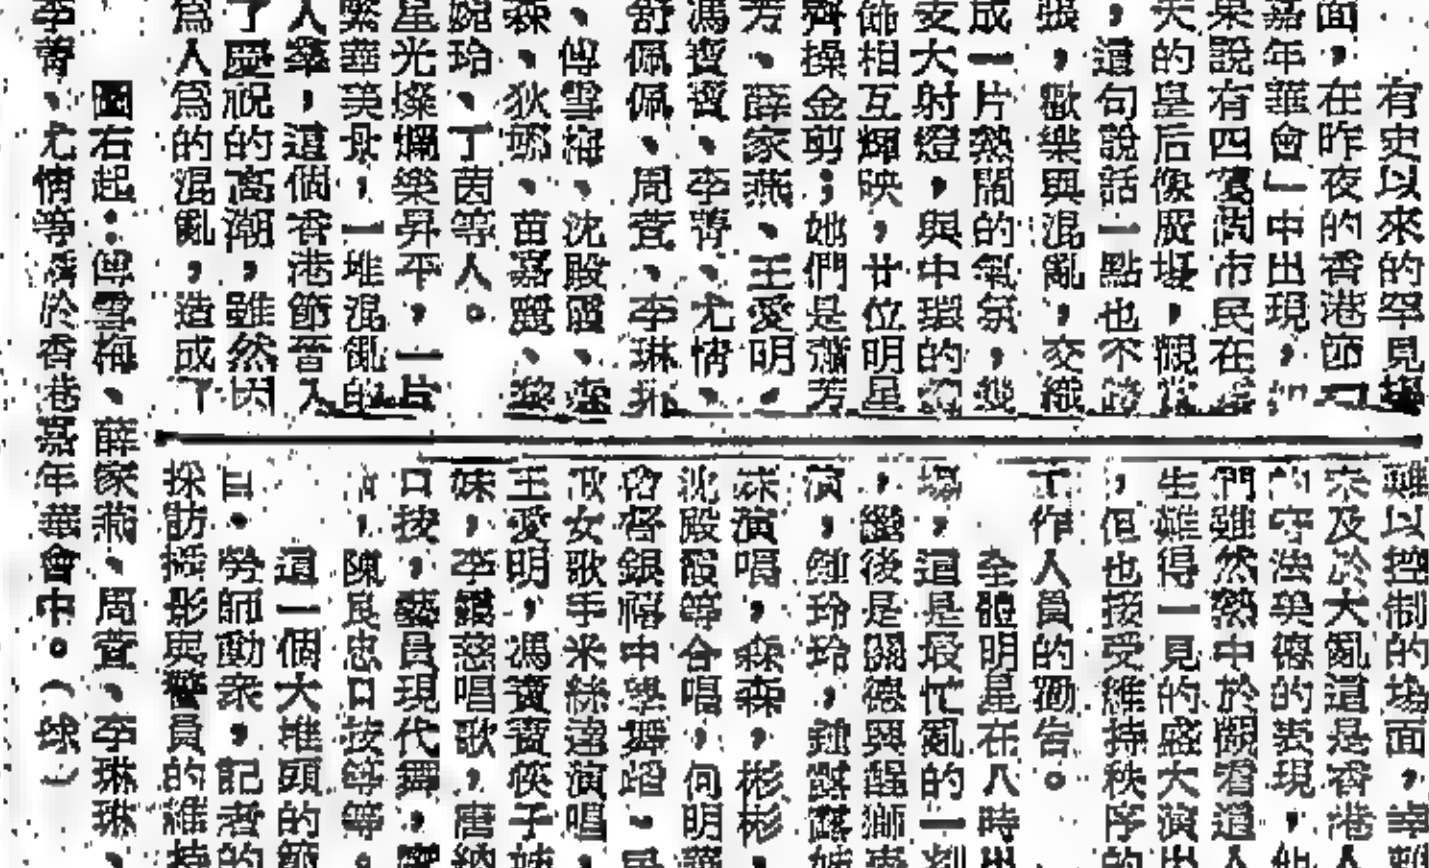 有史以來的罕見場
面，在昨夜的香港節「
嘉年華會」中出現，如
果說有四萬市民在
天的皇后像廣場，觀
，這句說話一點也不誇
張，歡樂與混亂，交織
成一片熱鬧的氣氛，幾
支大射燈，與中環的
飾相互輝映，廿位明星
齊操金剪；她們是蕭芳
芳、薛家燕、王愛明、
馮寶寶、李菁、尤情、
舒佩佩、周萱、李琳琳
、傅雪梅、沈殿霞、
森、狄娜、苗嘉麗、
婉玲、丁茵等人。
星光燦爛樂昇平，一片
繁華美景，一堆混亂的
人羣，這個香港節晉入
了慶祝的高潮，雖然因
爲人爲的混亂，造成了
難以控制的場面，幸
未及於大亂這是香港
守法美德的表現，他
們雖然熱中於觀看這
生難得一見的盛大演出
，但也接受維持秩序的
工作人員的勸告。
全體明星在八時出
場，這是最忙亂的一刻
，繼後是關德興醒獅
演，鍾玲玲，鍾
妹演唱，森森，彬彬，
沈殿霞等合唱，何明
督銀禧中學舞蹈、
歌女歌手米絲達演唱，
王愛明，馮寶寶筷子
妹，李鵬慈唱歌，唐
口技，藝員現代舞，
，陳良忠口技等等。
這一個大堆頭的節
目，勞師動衆，記者的
採訪攝影與警員的維持
圖右起：傅雪梅、薛家燕、周萱、李琳琳、
李菁、尤情等攝於香港嘉年華會中。（球）